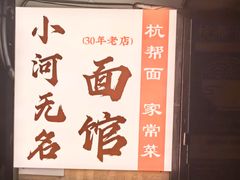 小河无名
(30年老店)
面馆
杭帮面 家常菜